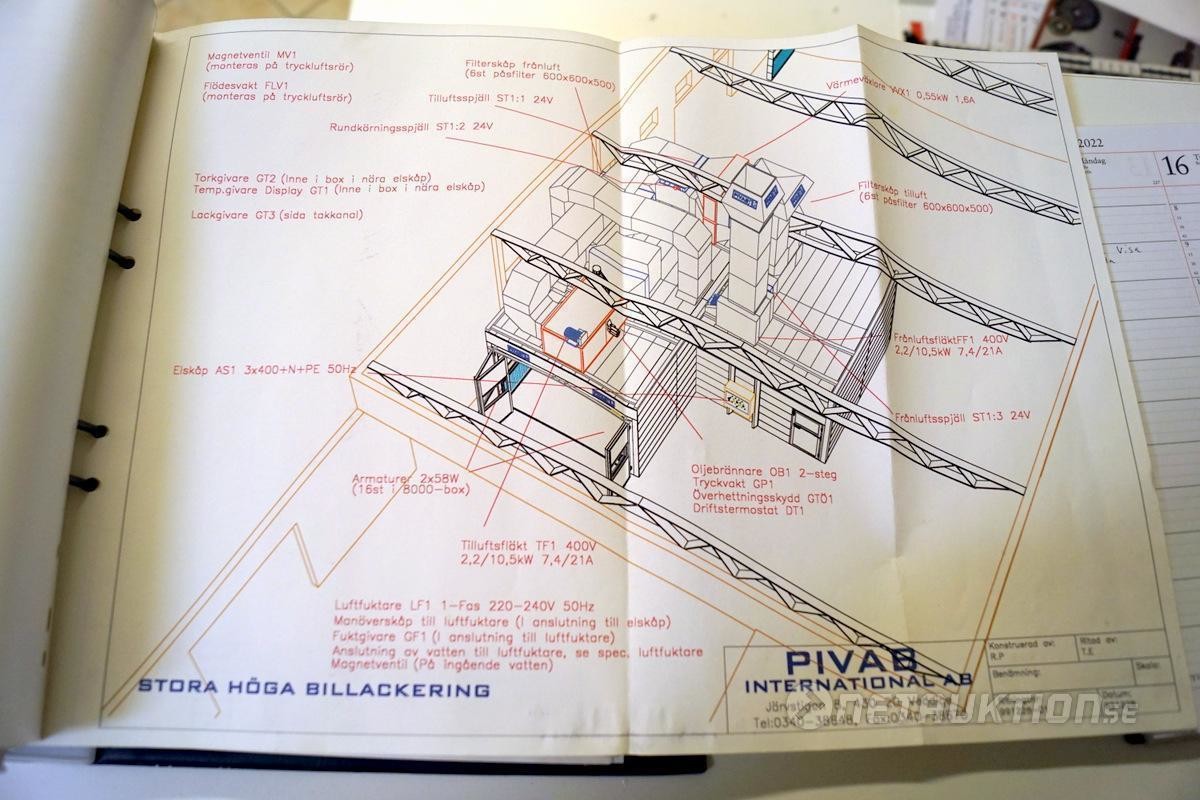 Magnetventil MV1
(monteras på tryckluftsrör)
Flödesvakt FLV1
(monteras på tryckluftsrör)
Filterskåp frånluft
(6st påsfilter 600x600x500)
Tilluftsspjäll ST1:1 24V
Rundkörningsspjäll ST1:2 24V
Värmeväxlare VVX1 0,55kW 1,6A
Torkgivare GT2 (Inne i box i nära elskåp)
Temp.givare Display GT1 (Inne i box i nära elskåp)
Lackgivare GT3 (sida takkanal)
Filterskåp tilluft
(6st påsfilter 600x600x500)
FrånluftsfläktFF1 400V
2,2/10,5kW 7,4/21A
Elskåp AS1 3x400+N+PE 50Hz
Frånluftsspjäll ST1:3 24V
Armaturer 2x58W
(16st i 8000-box)
Oljebrännare OB1 2-steg
Tryckvakt GP1
Överhettningsskydd GTÖ1
Driftstermostat DT1
Tilluftsfläkt TF1 400V
2,2/10,5kW 7,4/21A
Luftfuktare LF1 1-Fas 220-240V 50Hz
Manöverskåp till luftfuktare (I anslutning till elskåp)
Fuktgivare GF1 (I anslutning till luftfuktare)
Anslutning av vatten till luftfuktare, se spec, luftfuktare
Magnetventil (På ingående vatten)
STORA HÖGA BILLACKERING
PIVAB
INTERNATIONAL AB
Järvstigen
Tel:0340-38848, Fax:0340-
Konstruerad av:
R.P
Ritad av:
T.E
Benämning:
Skala:
Datum:
NETAUKTION.SE
2022
Måndag
16